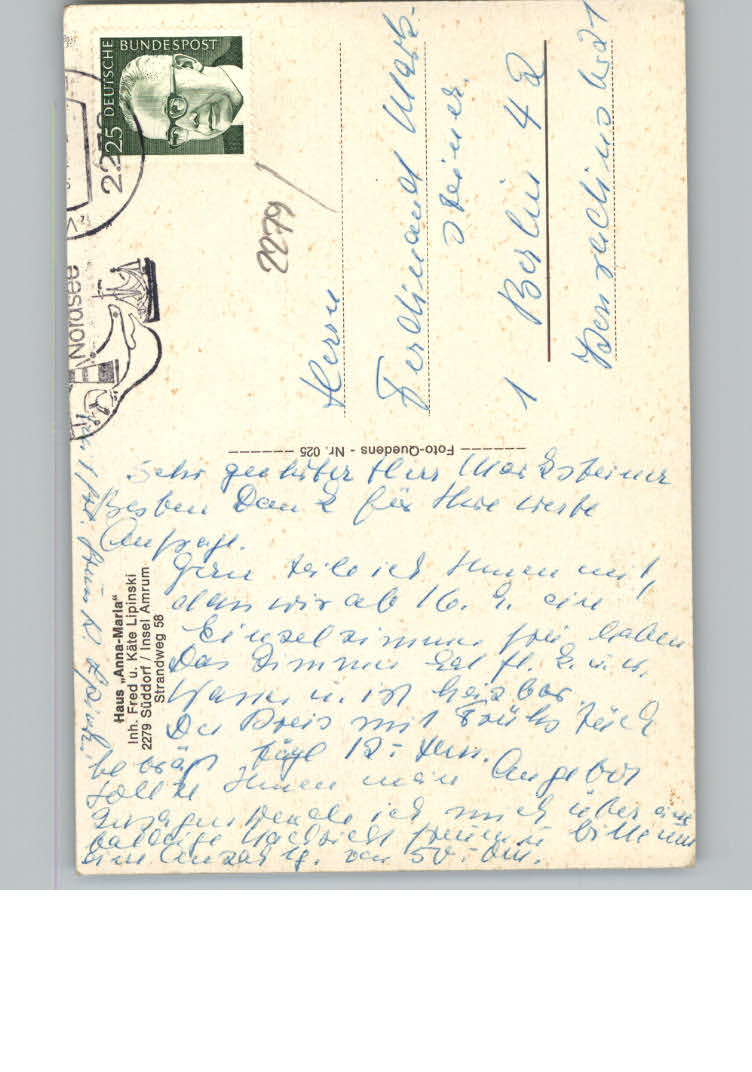 DEUTSCHE BUNDESPOST
25
227
Nordsee
2279
Herrn
Ferdinand Mark-
steiner
1 Berlin 42
Foto-Quedens - Nr. 025
Haus „Anna-Maria“
Inh. Fred u. Käte Lipinski
2279 Süddorf / Insel Amrum
Strandweg 58
Sehr geehrter Herr Marksteiner
Besten Dank für Ihre werte
Anfrage.
Gern teile ich Ihnen mit,
dass wir ab 16. 9. ein
Einzelzimmer frei haben
Das Zimmer hat fl. k. u. w.
Wasser u. ist heizbar.
Der Preis mit Frühstück
beträgt tägl 12,- DM.
Sollte Ihnen mein Angebot
zusagen werde ich mich über eine
baldige Nachricht freuen u. bitte um
eine Anzahlg. von 50,- DM.